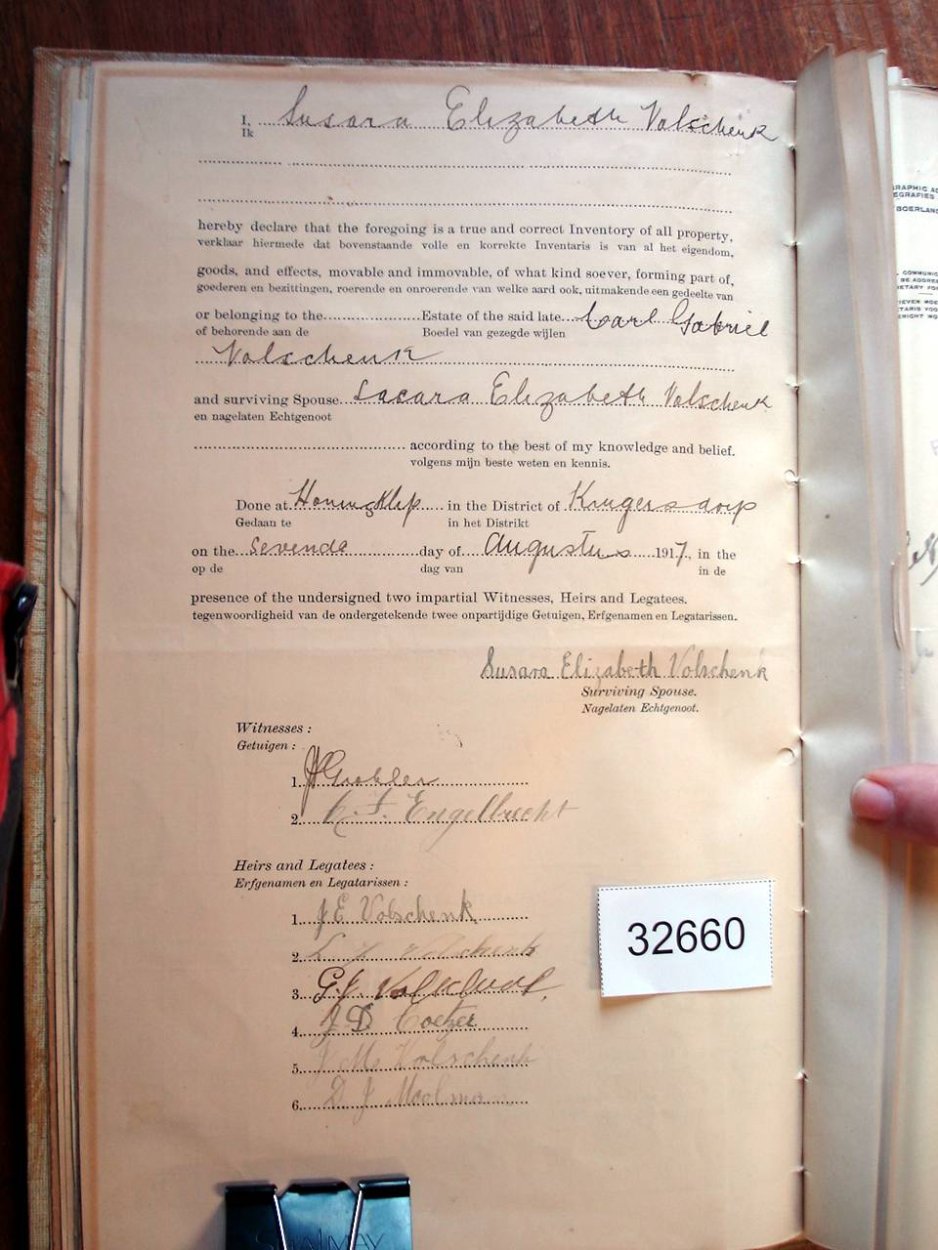 I, Susara Elizabeth Volschenk
Ik
hereby declare that the foregoing is a true and correct Inventory of all property,
verklaar hiermede dat bovenstaande volle en korrekte Inventaris is van al het eigendom,
goods, and effects, movable and immovable, of what kind soever, forming part of,
goederen en bezittingen, roerende en onroerende van welke aard ook, uitmakende een gedeelte van
or belonging to the Estate of the said late Carl Gabriel
of behorende aan de Boedel van gezegde wijlen
Volschenk
and surviving Spouse Sacara Elizabeth Volschenk
en nagelaten Echtgenoot
according to the best of my knowledge and belief.
volgens mijn beste weten en kennis.
Done at Honingklip in the District of Krugersdorp
Gedaan te in het Distrikt
on the sevende day of Augustus 1917, in the
op de dag van in de
presence of the undersigned two impartial Witnesses, Heirs and Legatees.
tegenwoordigheid van de ondergetekende twee onpartijdige Getuigen, Erfgenamen en Legatarissen.
Susara Elizabeth Volschenk
Surviving Spouse.
Nagelaten Echtgenoot.
Witnesses :
Getuigen :
1. Grobler
2. Engelbrecht
Heirs and Legatees :
Erfgenamen en Legatarissen :
1. J E Volschenk
2. Volschenk
3. G. J. Volschenk
4. J D Coetzer
5. J M Volschenk
6. D J Moolman
32660